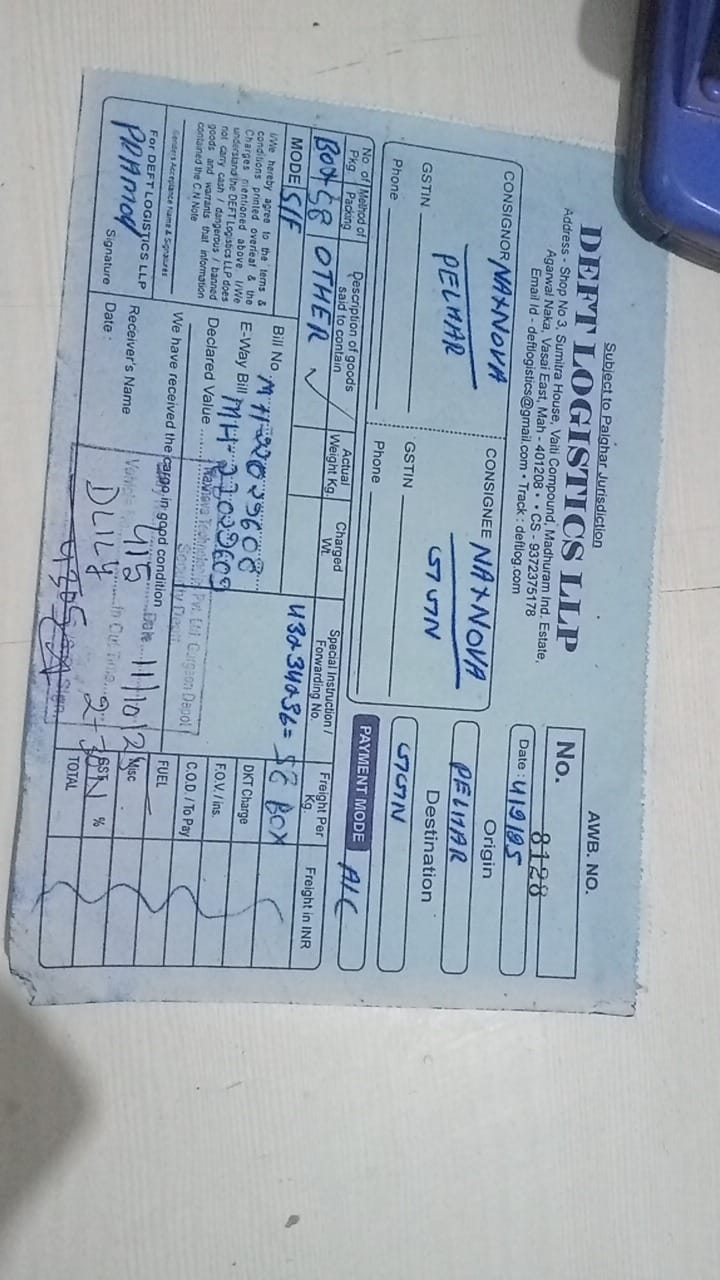 Subject to Palghar Jurisdiction
DEFT LOGISTICS LLP
Address - Shop No 3, Sumitra House, Vaiti Compound, Madhuram Ind. Estate,
Agarwal Naka, Vasai East, Mah - 401208 • • CS - 9372375178
Email Id - deftlogistics@gmail.com • Track : deftlog.com
AWB. NO.
No. 8128
Date : 4/9/25
CONSIGNOR NAXNOVA
PELHAR
GSTIN
Phone
CONSIGNEE NAXNOVA
GGN
GSTIN
Phone
Origin
PELHAR
Destination
GGN
PAYMENT MODE A/C
No. of Pkg.
Method of Packing
Description of goods said to contain
Actual Weight Kg.
Charged Wt.
Special Instruction / Forwarding No.
Freight Per Kg.
Freight in INR
BOX 58 OTHER
MODE S/F
58 BOX
I/We hereby agree to the terms &
conditions printed overleaf & the
Charges mentioned above I/We
understand the DEFT Logistics LLP does
not carry cash / dangerous / banned
goods and warrants that information
contained the C.N Note
Senders Acceptance Name & Signatures
For DEFT LOGISTICS LLP
PRAMOD
Signature
Bill No.
E-Way Bill
Declared Value
We have received the cargo in good condition
Receiver's Name
Date :
Naxnova Technologies Pvt. Ltd. Gurgaon Depot
Date 11/10/2
DKT Charge
F.O.V. / ins.
C.O.D. / To Pay
FUEL
Misc
GST %
TOTAL